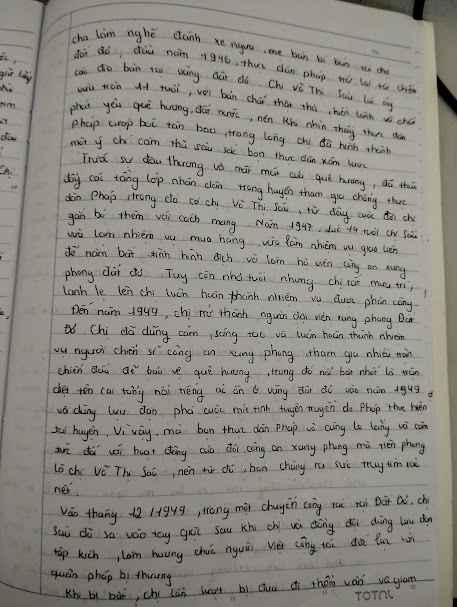 cha làm nghề đánh xe ngựa, mẹ bán bún tại chợ
đất đỏ, đầu năm 1946, thực dân pháp trở lại tái chiếm
các địa bàn tại vùng đất đỏ. Chị Võ Thị Sáu lúc ấy
vừa tròn 11 tuổi, với bản chất thật thà, hiền lành và chất
phát yêu quê hương, đất nước, nên khi nhìn thấy thực dân
Pháp cướp bóc tàn bạo, trong lòng chị đã hình thành
một ý chí căm thù sâu sắc bọn thực dân xâm lược
Trước sự đau thương và mất mát của quê hương, đã thúc
đẩy các tầng lớp nhân dân trong huyện tham gia chống thực
dân Pháp, trong đó có chị Võ Thị Sáu, từ đây cuộc đời chị
gắn bó thêm với cách mạng. Năm 1947, lúc 14 tuổi chị Sáu
vừa làm nhiệm vụ mua hàng, vừa làm nhiệm vụ giao liên
để nắm bắt tình hình địch và làm hộ viên công an xung
phong đất đỏ. Tuy còn nhỏ tuổi nhưng chị rất mưu trí,
lanh lẹ lên chị luôn hoàn thành nhiệm vụ được phân công.
Đến năm 1949, chị trở thành người đội viên xung phong Đất
Đỏ. Chị đã dũng cảm, sáng tạo và luôn hoàn thành nhiệm
vụ người chiến sĩ công an xung phong, tham gia nhiều trận
chiến đấu để bảo vệ quê hương, trong đó nổi bật nhất là trận
diệt tên cai tổng nổi tiếng ác ôn ở vùng đất đỏ vào năm 1949
và dùng lựu đạn phá cuộc mít tinh tuyên truyền do Pháp thực hiện
tại huyện. Vì vậy, mà bọn thực dân Pháp vô cùng lo lắng và căm
tức đối với hoạt động của đội công an xung phong mà tiên phong
là chị Võ Thị Sáu, nên từ đó, bọn chúng ra sức truy tìm
Vào tháng 12/1949, trong một chuyến công tác tại Đất Đỏ, chị
Sáu đã sa vào tay giặc sau khi chị và đồng đội dùng lựu đạn
tập kích, làm hương chức người Việt cộng tác đắc lực với
quân pháp bị thương
Khi bị bắt, chị lần lượt bị đưa đi thẩm vấn và giam
TOTAL